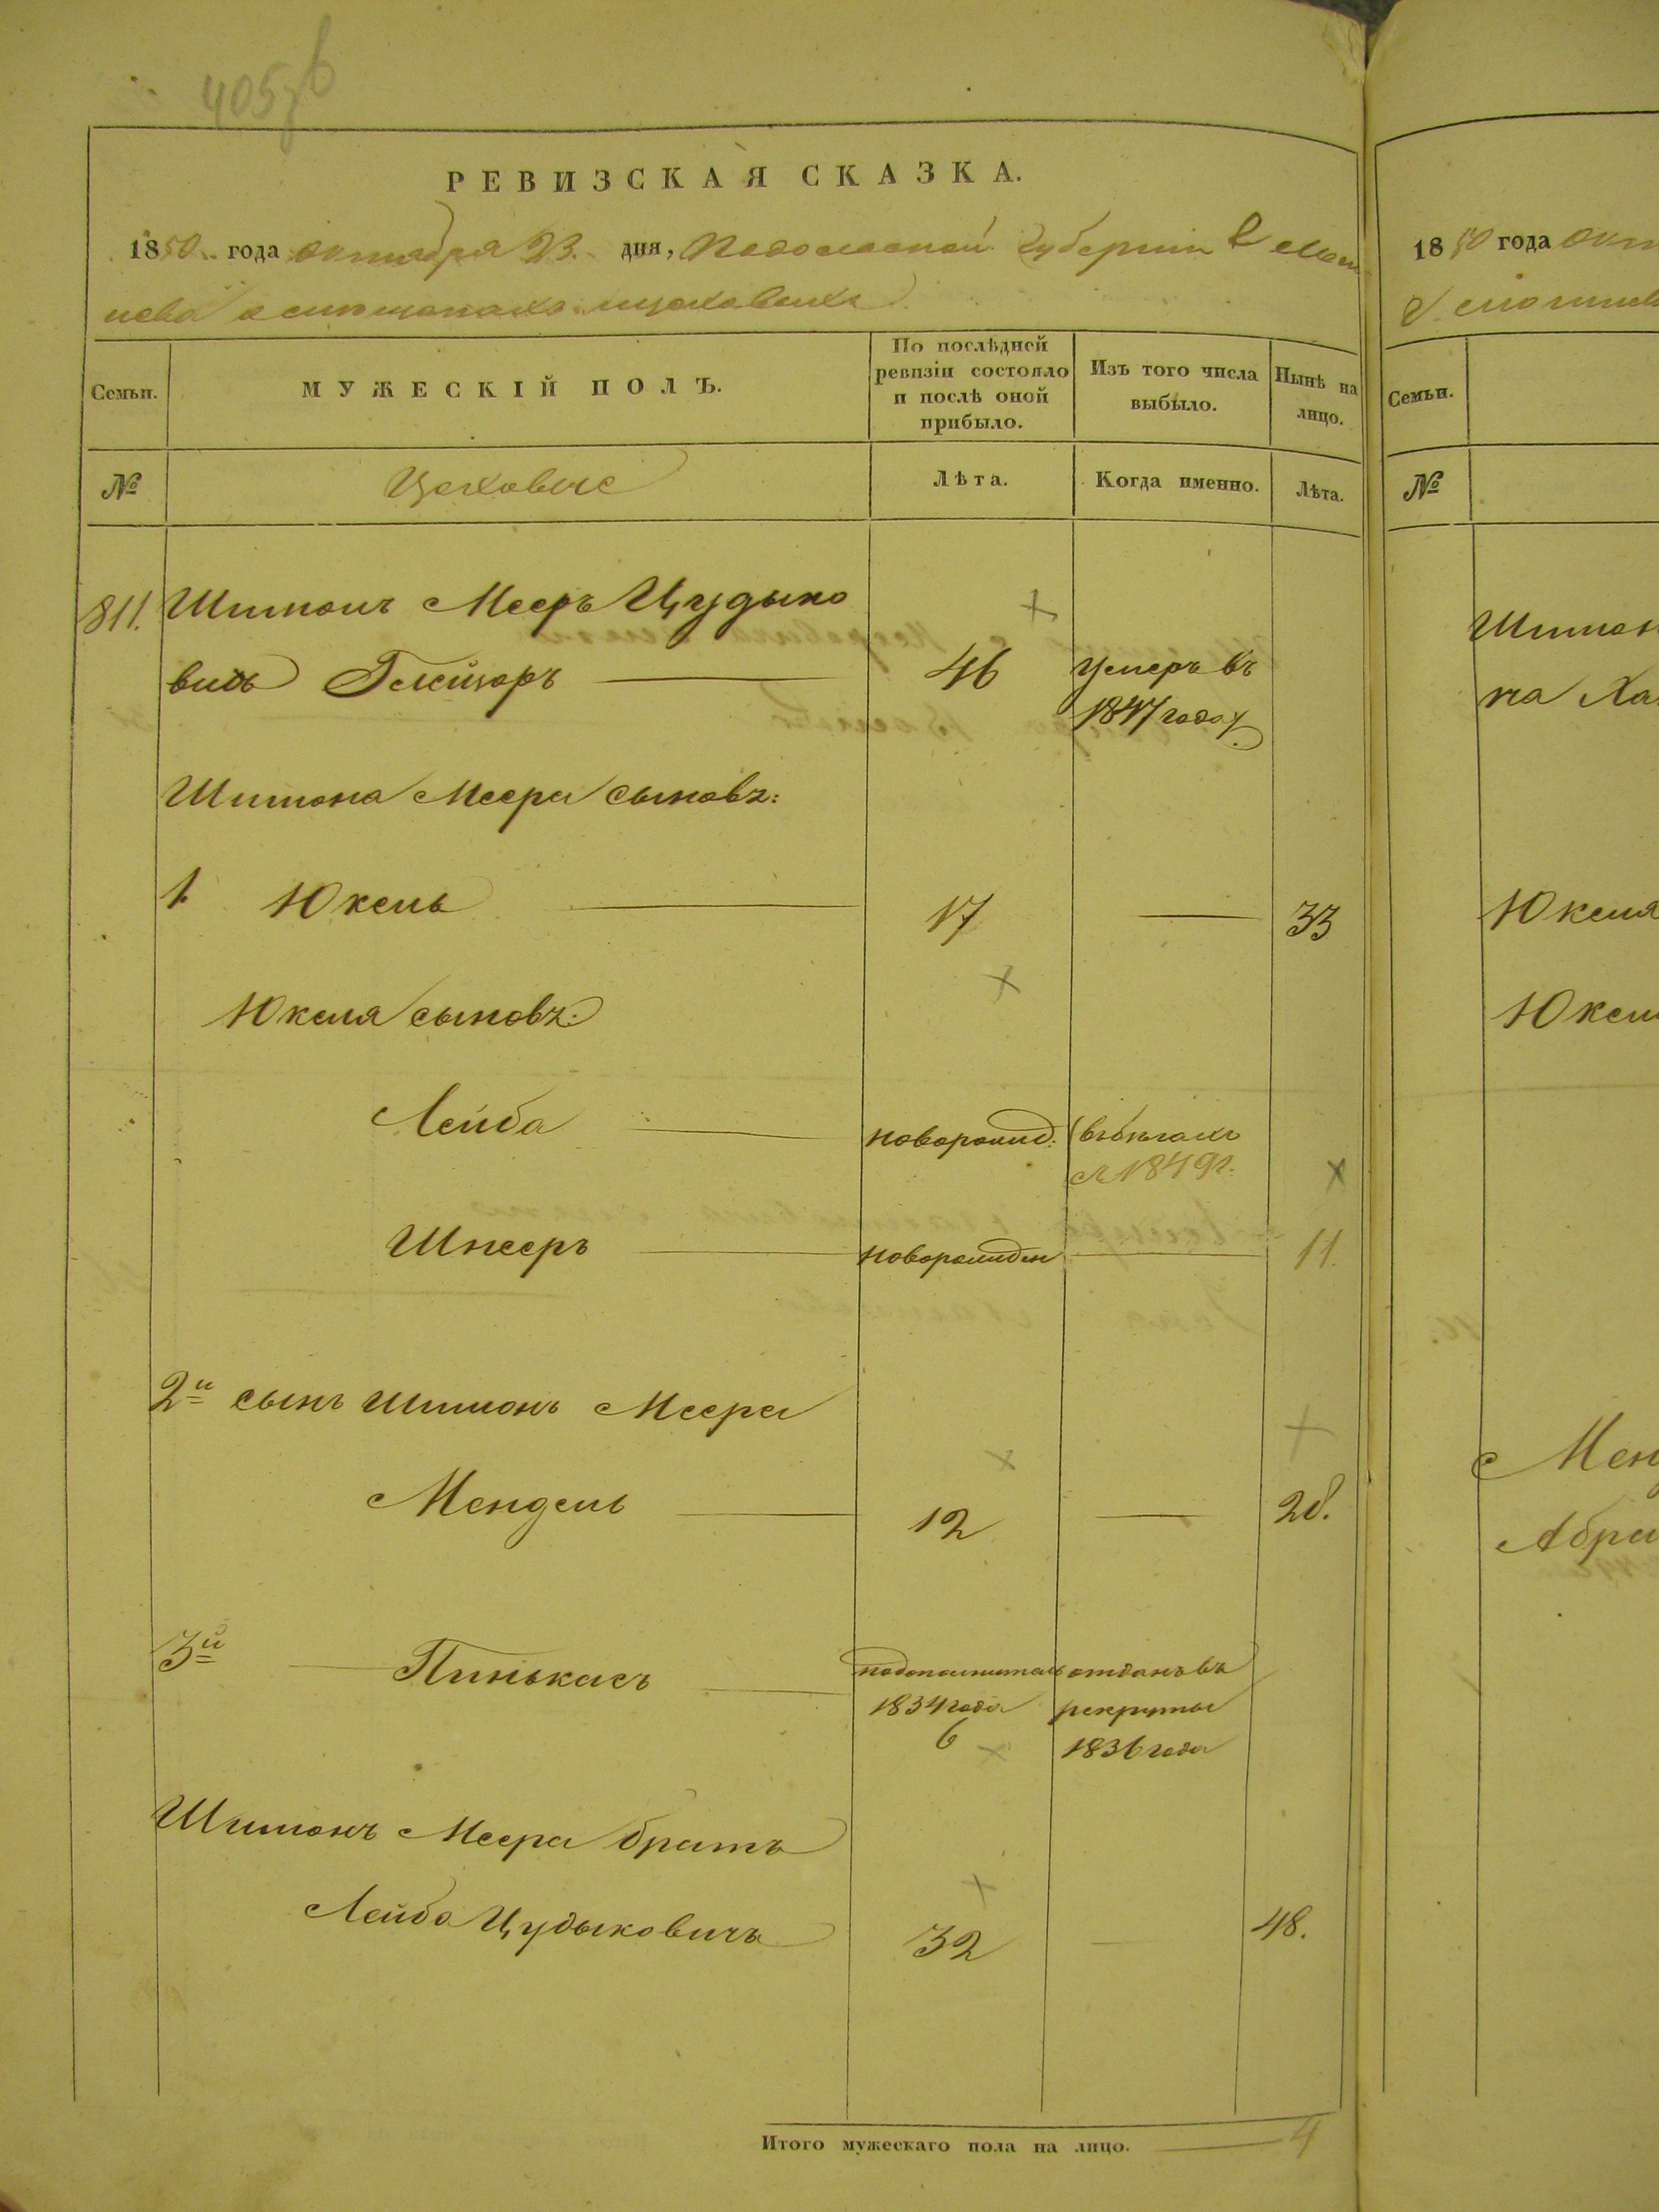 405
РЕВИЗСКАЯ СКАЗКА.
1850 года октября 23. дня, Подольской губернии
цеховыхъ
Семьи.
МУЖЕСКІЙ ПОЛЪ.
По послѣдней ревизіи состояло и послѣ оной прибыло.
Изъ того числа выбыло.
Нынѣ на лицо.
№
Цеховые
Лѣта.
Когда именно.
Лѣта.
811. Шимонъ Мееръ Цудыко
вичь 46 умеръ въ
1847 году
Шимона Меера сыновъ:
1. Юкель 17 33
Юкеля сыновъ:
Лейба новорожд: въ бѣгахъ
съ 1849 г.
Шнееръ новорожден 11.
2й сынъ Шимонъ Меера
Мендель 12 28.
3й Пинькасъ отданъ въ
1834 года рекруты
6 1836 года
Шимонъ Меера братъ
Лейба Цудыковичъ 32 48.
Итого мужескаго пола на лицо. 4
1850 года окт
Семьи.
№
Шимон
на Ха
Юкеля
Юкел
Мен
Абра